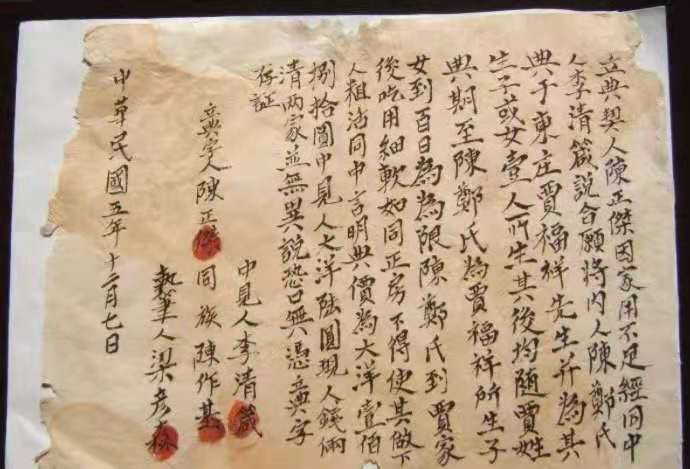 立典契人陳正傑因家用不足經同中
人李清箴說合願將内人陳鄭氏
典于東庄賈福祥先生并為其
生子或女壹人所生其後均随賈姓
典期至陳鄭氏為賈福祥所生子
女到百日為為限陳鄭氏到賈家
後吃用細軟如同正房不得使其做下
人粗活同中言明典價為大洋壹佰
捌拾圓中見人之洋陆圓現人錢兩
清兩家並無異說恐口無憑立典字
存証
中見人李清箴
典字人陳正傑 同族陳作基
執筆人梁彦森
中華民國五年十二月七日